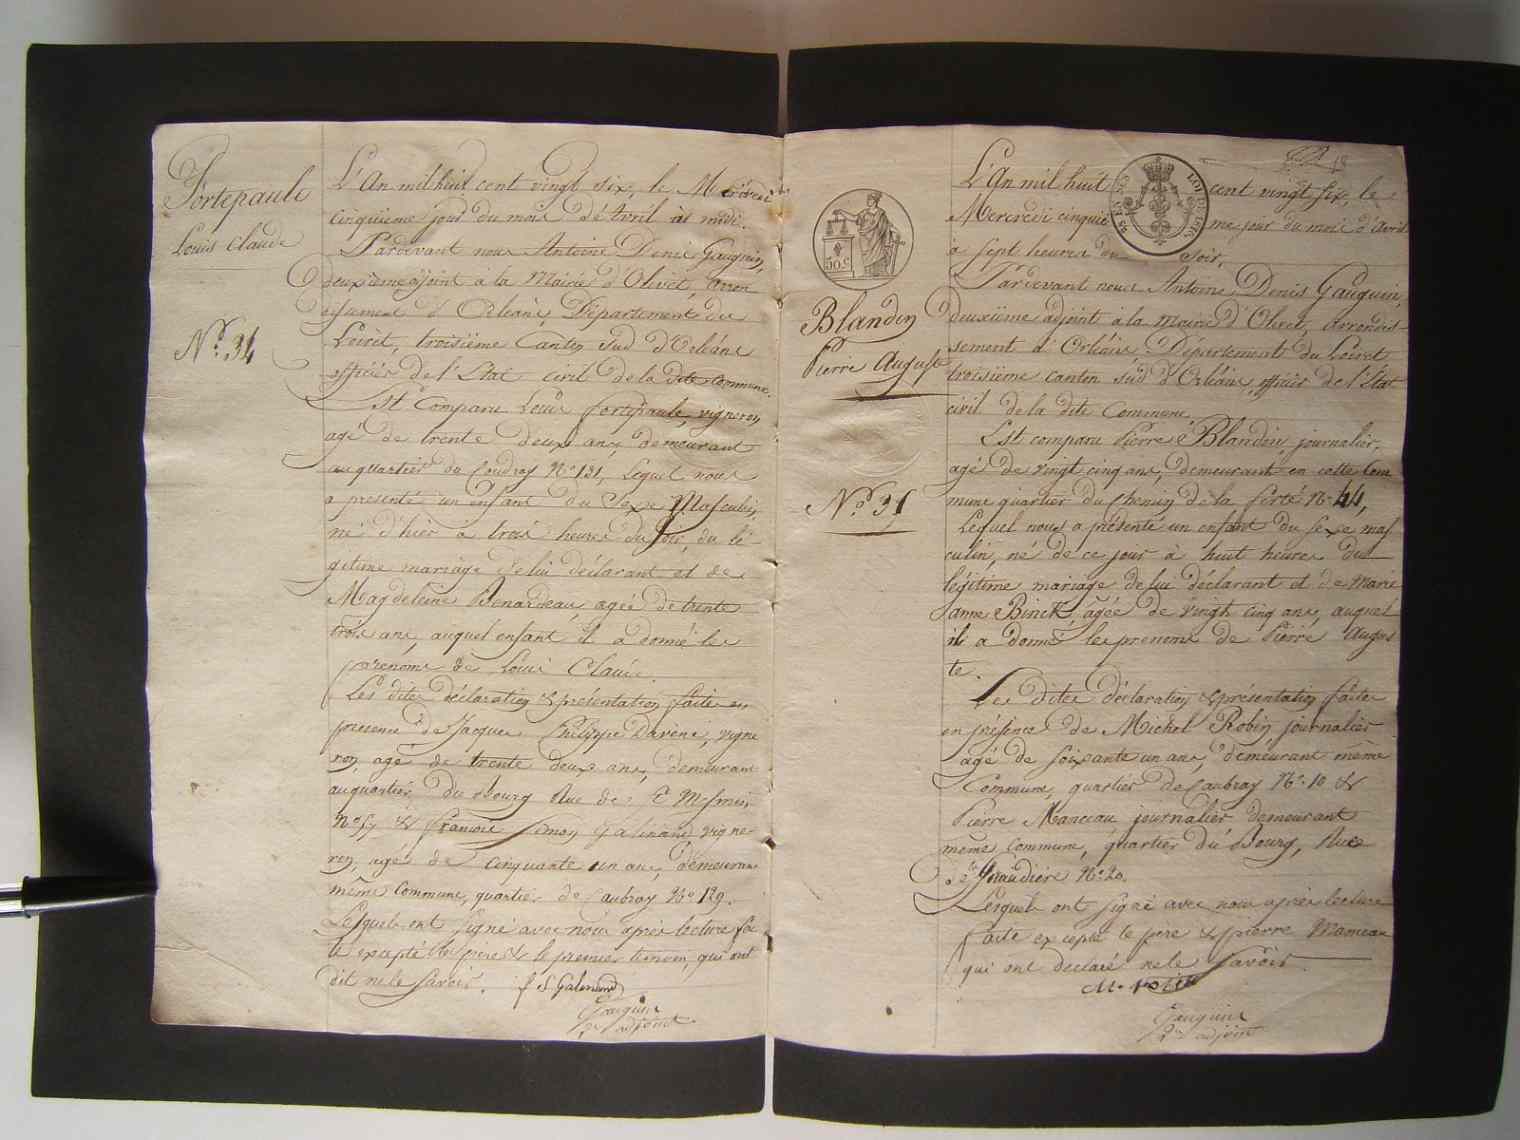 Fortepaule
Louis Claude
N.º 34
L'An mil huit cent vingt six, le Mercredi
cinquieme jour du mois d'Avril à midi.
Pardevant nous Antoine Denis Gauguin,
deuxieme adjoint à la Mairie d'Olivet, arron
dissement d'Orléans, Département du
Loiret, troisième Canton sud d'Orléans
officier de l'Etat civil de la dite Commune.
Est Comparu Louis fortepaule, vigneron
agé de trente deux ans, demeurant
au quartier du Coudray Nº 131, Lequel nous
a presenté un enfant du Sexe Masculin,
né d'hier à trois heures du soir, du lé-
gitime mariage de lui déclarant et de
Magdeleine Benardeau agée de trente
trois ans, auquel enfant il a donné les
prenoms de Louis Claude.
Les dites déclaration & présentation faites en
presence de Jacques Philippe Davène, vigne
ron, agé de trente deux ans, demeurant
au quartier du Bourg Rue de St Mesmin,
Nº 57 & francois Simon Galinand vigne-
ron, agé de cinquante un ans, demeurant
même Commune, quartier de Caubray Nº 129.
Lesquels ont signé avec nous après lecture fai
te excepté les pere & le premier temoin, qui ont
dit ne le savoir. f S Galinand
Gauguin
2e adjoint
50 C
Blandin
Pierre Auguste
N.º 35
18
L'An mil huit cent vingt six, le
Mercredi cinquieme jour du mois d'Avril
à sept heures du soir,
Pardevant nous Antoine Denis Gauguin
deuxieme adjoint à la Mairie d'Olivet, arrondis-
sement d'Orléans, Département du Loiret
troisième canton sud d'Orléans, officier de l'Etat
civil de la dite Commune
Est comparu Pierre Blandin, journalier,
agé de vingt cinq ans, demeurant en cette Com
mune quartier du Chemin de la ferté Nº 44,
Lequel nous a présenté un enfant du sexe mas
culin, né de ce jour à huit heures du
légitime mariage de lui déclarant et de Marie
anne Binck, âgée de vingt cinq ans, auquel
il a donné les prenoms de Pierre Augus
te.
Les dites déclaration & présentation faites
en présence de Michel Robin journalier
agé de soixante un ans, demeurant même
Commune, quartier de Caubray Nº 10 &
Pierre Manceau journalier demeurant
même commune, quartier du Bourg, Rue
de Nº 20.
Lesquels ont signé avec nous après lecture
faite excepté le pere & pierre Manceau
qui ont declaré ne le savoir.
Gauguin
2e adjoint